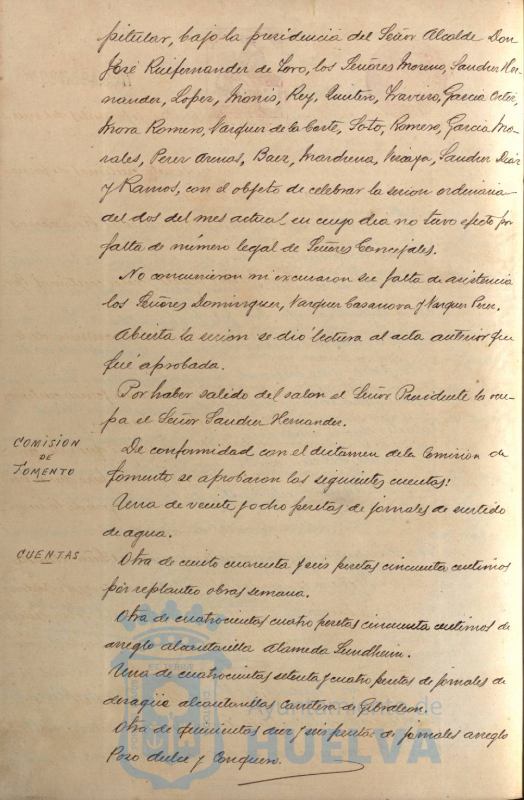 pitular, bajo la presidencia del Señor Alcalde Don
José Ruifernander de Toro, los Señores Moreno, Sancher Her-
nander, Lopez, Monis, Rey, Quintero, Traviero, Garcia Ortiz,
Mora Romero, Varquer de la Corte, Soto, Romero, Garcia Mo-
rales, Perer Arenas, Baez, Marchena, Vizcaya, Sancher Diaz
y Ramos, con el objeto de celebrar la sesion ordinaria
del dos del mes actual en cuyo dia no tuvo efecto por
falta de número legal de Señores Concejales.
No concurrieron ni excusaron su falta de asistencia
los Señores Dominguer, Varquer Casanova y Varquer Perez.
Abierta la sesion se dió lectura al acta anterior que
fué aprobada.
Por haber salido del salon el Señor Presidente la ocu-
pa el Señor Sancher Hernander.
COMISION
DE
FOMENTO
De conformidad con el dictamen de la Comision de
fomento se aprobaron las siguientes cuentas:
Una de veinte y ocho pesetas de jornales de surtido
de agua.
CUENTAS
Otra de ciento cuarenta y seis pesetas cincuenta centimos
por replanteo obras semana.
Otra de cuatrocientas cuatro pesetas cincuenta centimos de
arreglo alcantarilla Alameda Sundheim.
Una de cuatrocientas setenta y cuatro pesetas de jornales de
desagüe alcantarillas Carretera de Gibraleon.
Otra de quinientas diez y seis pesetas de jornales arreglo
Pozo dulce y Conquero.
Ayuntamiento de
HUELVA